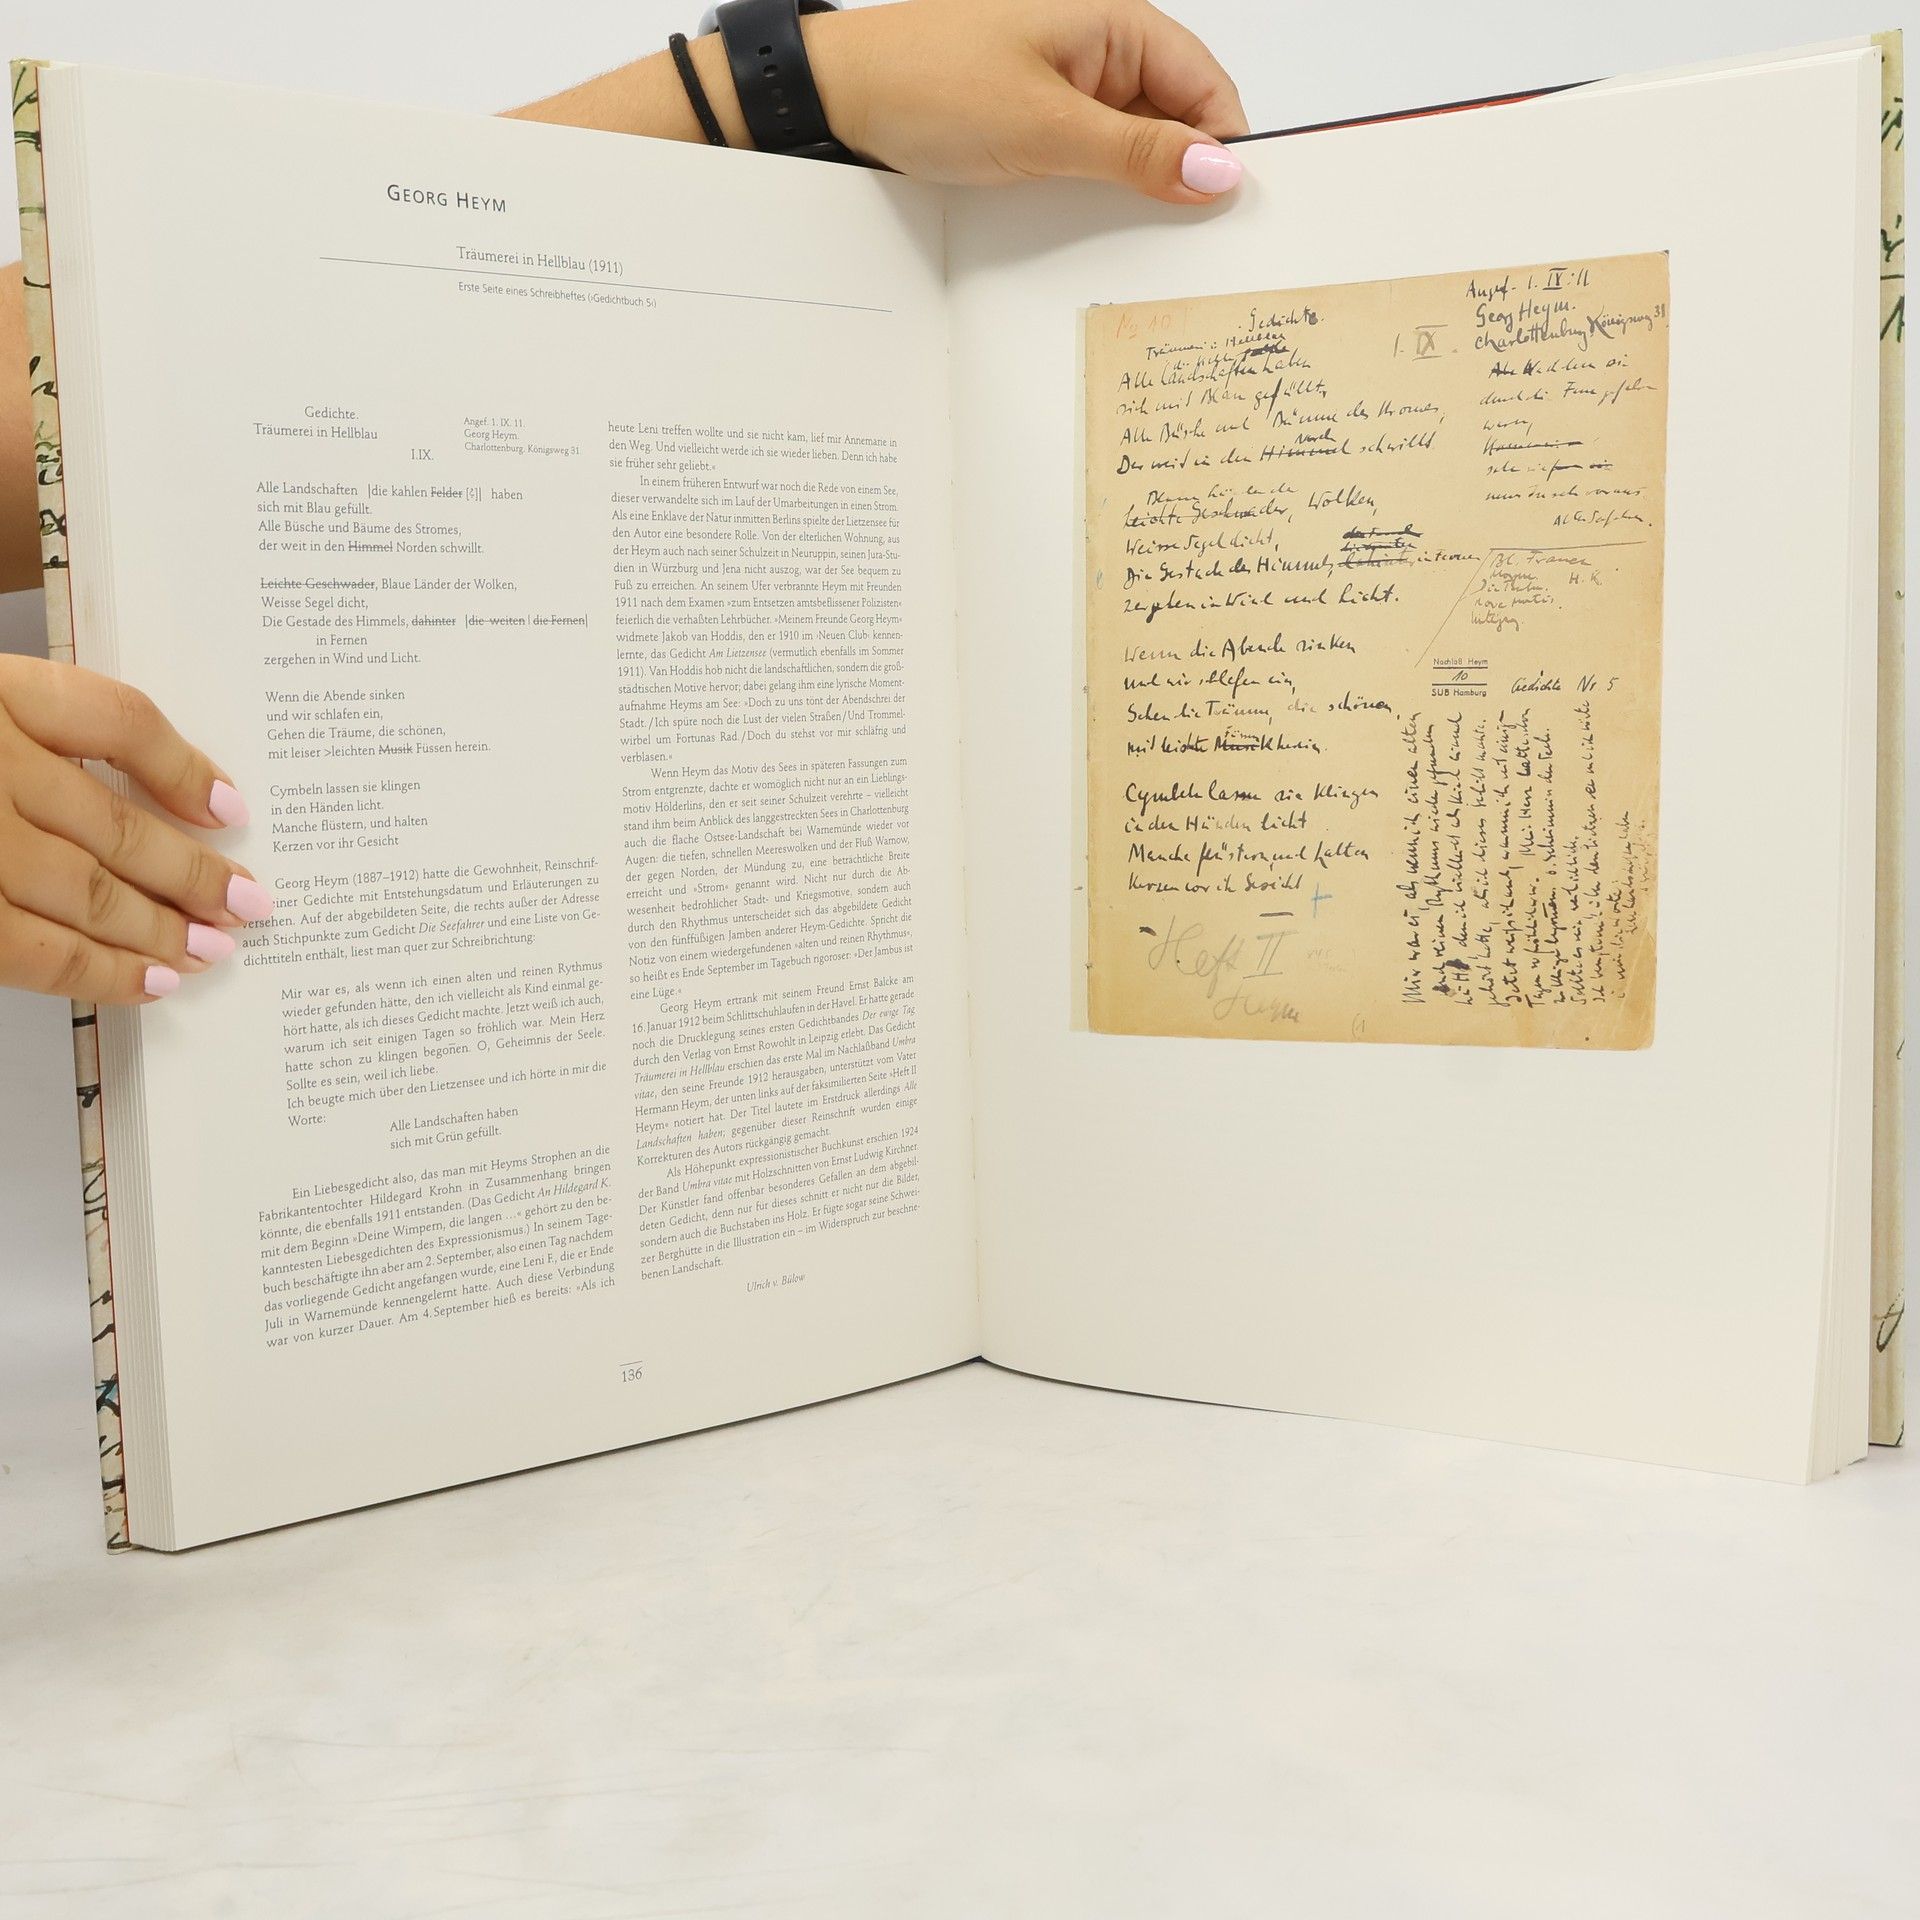 GEORG HEYM
Träumerei in Hellblau (1911)
Erste Seite eines Schreibheftes (›Gedichtbuch 5‹)
Gedichte.
Träumerei in Hellblau
I.IX.
Angef. 1. IX. 11.
Georg Heym.
Charlottenburg. Königsweg 31
Alle Landschaften |die kahlen Felder [¿]| haben
sich mit Blau gefüllt.
Alle Büsche und Bäume des Stromes,
der weit in den Himmel Norden schwillt.
Leichte Geschwader, Blaue Länder der Wolken,
Weisse Segel dicht,
Die Gestade des Himmels, dahinter |die weiten | die Fernen|
in Fernen
zergehen in Wind und Licht.
Wenn die Abende sinken
und wir schlafen ein,
Gehen die Träume, die schönen,
mit leiser >leichten Musik Füssen herein.
Cymbeln lassen sie klingen
in den Händen licht.
Manche flüstern, und halten
Kerzen vor ihr Gesicht
Georg Heym (1887–1912) hatte die Gewohnheit, Reinschrif-
einer Gedichte mit Entstehungsdatum und Erläuterungen zu
versehen. Auf der abgebildeten Seite, die rechts außer der Adresse
auch Stichpunkte zum Gedicht Die Seefahrer und eine Liste von Ge-
dichttiteln enthält, liest man quer zur Schreibrichtung:
Mir war es, als wenn ich einen alten und reinen Rythmus
wieder gefunden hätte, den ich vielleicht als Kind einmal ge-
hört hatte, als ich dieses Gedicht machte. Jetzt weiß ich auch,
warum ich seit einigen Tagen so fröhlich war. Mein Herz
hatte schon zu klingen begon̄en. O, Geheimnis der Seele.
Sollte es sein, weil ich liebe.
Ich beugte mich über den Lietzensee und ich hörte in mir die
Worte:
Alle Landschaften haben
sich mit Grün gefüllt.
Ein Liebesgedicht also, das man mit Heyms Strophen an die
Fabrikantentochter Hildegard Krohn in Zusammenhang bringen
könnte, die ebenfalls 1911 entstanden. (Das Gedicht An Hildegard K.
mit dem Beginn »Deine Wimpern, die langen …« gehört zu den be-
kanntesten Liebesgedichten des Expressionismus.) In seinem Tage-
buch beschäftigte ihn aber am 2. September, also einen Tag nachdem
das vorliegende Gedicht angefangen wurde, eine Leni F., die er Ende
Juli in Warnemünde kennengelernt hatte. Auch diese Verbindung
war von kurzer Dauer. Am 4. September hieß es bereits: »Als ich
heute Leni treffen wollte und sie nicht kam, lief mir Annemarie in
den Weg. Und vielleicht werde ich sie wieder lieben. Denn ich habe
sie früher sehr geliebt.«
In einem früheren Entwurf war noch die Rede von einem See,
dieser verwandelte sich im Lauf der Umarbeitungen in einen Strom.
Als eine Enklave der Natur inmitten Berlins spielte der Lietzensee für
den Autor eine besondere Rolle. Von der elterlichen Wohnung, aus
der Heym auch nach seiner Schulzeit in Neuruppin, seinen Jura-Stu-
dien in Würzburg und Jena nicht auszog, war der See bequem zu
Fuß zu erreichen. An seinem Ufer verbrannte Heym mit Freunden
1911 nach dem Examen »zum Entsetzen amtsbeflissener Polizisten«
feierlich die verhaßten Lehrbücher. »Meinem Freunde Georg Heym«
widmete Jakob van Hoddis, den er 1910 im ›Neuen Club‹ kennen-
lernte, das Gedicht Am Lietzensee (vermutlich ebenfalls im Sommer
1911). Van Hoddis hob nicht die landschaftlichen, sondern die groß-
städtischen Motive hervor; dabei gelang ihm eine lyrische Moment-
aufnahme Heyms am See: »Doch zu uns tönt der Abendschrei der
Stadt. / Ich spüre noch die Lust der vielen Straßen / Und Trommel-
wirbel um Fortunas Rad. / Doch du stehst vor mir schläfrig und
verblasen.«
Wenn Heym das Motiv des Sees in späteren Fassungen zum
Strom entgrenzte, dachte er womöglich nicht nur an ein Lieblings-
motiv Hölderlins, den er seit seiner Schulzeit verehrte – vielleicht
stand ihm beim Anblick des langgestreckten Sees in Charlottenburg
auch die flache Ostsee-Landschaft bei Warnemünde wieder vor
Augen: die tiefen, schnellen Meereswolken und der Fluß Warnow,
der gegen Norden, der Mündung zu, eine beträchtliche Breite
erreicht und »Strom« genannt wird. Nicht nur durch die Ab-
wesenheit bedrohlicher Stadt- und Kriegsmotive, sondern auch
durch den Rhythmus unterscheidet sich das abgebildete Gedicht
von den fünffüßigen Jamben anderer Heym-Gedichte. Spricht die
Notiz von einem wiedergefundenen »alten und reinen Rhythmus«,
so heißt es Ende September im Tagebuch rigoroser: »Der Jambus ist
eine Lüge.«
Georg Heym ertrank mit seinem Freund Ernst Balcke am
16. Januar 1912 beim Schlittschuhlaufen in der Havel. Er hatte gerade
noch die Drucklegung seines ersten Gedichtbandes Der ewige Tag
durch den Verlag von Ernst Rowohlt in Leipzig erlebt. Das Gedicht
Träumerei in Hellblau erschien das erste Mal im Nachlaßband Umbra
vitae, den seine Freunde 1912 herausgaben, unterstützt vom Vater
Hermann Heym, der unten links auf der faksimilierten Seite »Heft II
Heym« notiert hat. Der Titel lautete im Erstdruck allerdings Alle
Landschaften haben; gegenüber dieser Reinschrift wurden einige
Korrekturen des Autors rückgängig gemacht.
Als Höhepunkt expressionistischer Buchkunst erschien 1924
der Band Umbra vitae mit Holzschnitten von Ernst Ludwig Kirchner.
Der Künstler fand offenbar besonderes Gefallen an dem abgebil-
deten Gedicht, denn nur für dieses schnitt er nicht nur die Bilder,
sondern auch die Buchstaben ins Holz. Er fügte sogar seine Schwei-
zer Berghütte in die Illustration ein – im Widerspruch zur beschrie-
benen Landschaft.
Ulrich v. Bülow
136
No 10
Gedichte.
Träumerei in Hellblau
Angef. 1. IX. 11
Georg Heym.
Charlottenburg, Königsweg 31
1. IX.
Alle Landschaften haben
sich mit Blau gefüllt,
Alle Büsche und Bäume des Stromes,
Der weit in den Himmel Norden schwillt.
Blaue Länder der
Leichte Geschwader, Wolken,
Weisse Segel dicht,
Die Gestade des Himmels, dahinter in Fernen
zergehen in Wind und Licht.
Wenn die Abende sinken
und wir schlafen ein,
Gehen die Träume, die schönen,
Cymbeln lassen sie klingen
in den Händen licht
Manche flüstern, und halten
Kerzen vor ihr Gesicht
Heft II
Heym
H. K.
Nachlaß Heym
10
SUB Hamburg
Gedichte Nr. 5
Mir war es, als wenn ich einen alten
und reinen Rythmus wieder gefunden